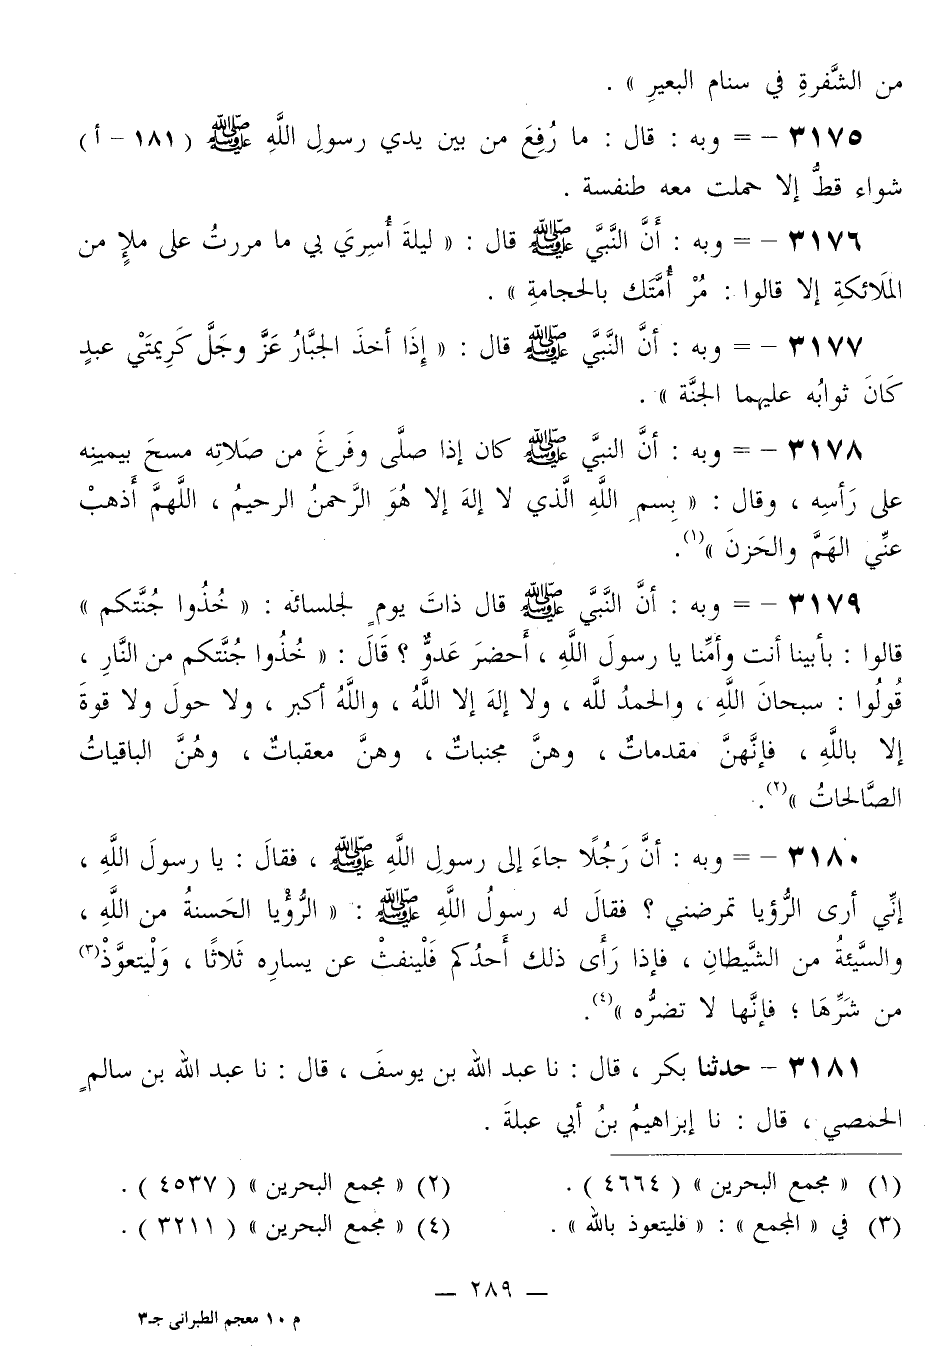 من الشَّفرةِ في سنام البعيرِ » .
٣١٧٥ – = وبه : قال : ما رُفِعَ من بين يدي رسولِ اللَّهِ ﷺ ( ١٨١ – أ )
شواء قطُّ إلا حملت معه طنفسة .
٣١٧٦ – = وبه : أَنَّ النَّبيَّ ﷺ قال : « ليلةَ أُسرِيَ بي ما مررتُ على ملإٍ من
الملَائكةِ إلا قالوا : مُرْ أُمَّتَك بالحجامةِ » .
٣١٧٧ – = وبه : أنَّ النَّبيَّ ﷺ قال : « إِذَا أخذَ الجبَّارُ عَزَّ وجَلَّ كَرِيمتَيْ عبدٍ
كَانَ ثوابُه عليهما الجنَّة » .
٣١٧٨ – = وبه : أنَّ النبيَّ ﷺ كان إذا صلَّى وفَرغَ من صَلاتِه مسحَ بيمينِه
على رَأسِه ، وقال : « بِسمِ اللَّهِ الَّذي لا إلهَ إلا هُوَ الرَّحمنُ الرحيمُ ، اللَّهمَّ أَذهبْ
عنِّي الهَمَّ والحَزنَ »(١).
٣١٧٩ – = وبه : أنَّ النَّبيَّ ﷺ قال ذاتَ يومٍ لجلسائه : « خُذُوا جُنَّتكم »
قالوا : بأبينا أنت وأمِّنا يا رسولَ اللَّهِ ، أَحضرَ عَدوٌّ ؟ قَالَ : « خُذُوا جُنَّتكم من النَّارِ ،
قُولُوا : سبحانَ اللَّهِ ، والحمدُ للَّه ، ولا إلهَ إلا اللَّهُ ، واللَّهُ أكبر ، ولا حولَ ولا قوةَ
إلا باللَّهِ ، فإنَّهنَّ مقدماتٌ ، وهنَّ مجنباتٌ ، وهنَّ معقباتٌ ، وهُنَّ الباقياتُ
الصَّالحاتُ »(٢).
٣١٨٠ – = وبه : أنَّ رَجُلًا جاءَ إلى رسولِ اللَّهِ ﷺ ، فقالَ : يا رسولَ اللَّهِ ،
إنِّي أرى الرُّؤيا تمرضني ؟ فقالَ له رسولُ اللَّهِ ﷺ : « الرُّؤْيا الحَسنةُ من اللَّهِ ،
والسَّيئةُ من الشَّيطانِ ، فإذا رَأَى ذلك أَحدُكم فَلْينفثْ عن يسارِه ثَلاثًا ، وَلْيتعوَّذْ(٣)
من شَرِّهَا ؛ فإنَّها لا تضرُّه »(٤).
٣١٨١ – حدثنا بكر ، قال : نا عبد الله بن يوسفَ ، قال : نا عبد الله بن سالمٍ
الحمصي ، قال : نا إبراهيمُ بنُ أبي عبلةَ .
(١) « مجمع البحرين » ( ٤٦٦٤ ) .
(٢) « مجمع البحرين » ( ٤٥٣٧ ) .
(٣) في « المجمع » : « فليتعوذ بالله » .
(٤) « مجمع البحرين » ( ٣٢١١ ) .
— ٢٨٩ —
م ١٠ معجم الطبرانى جـ٣